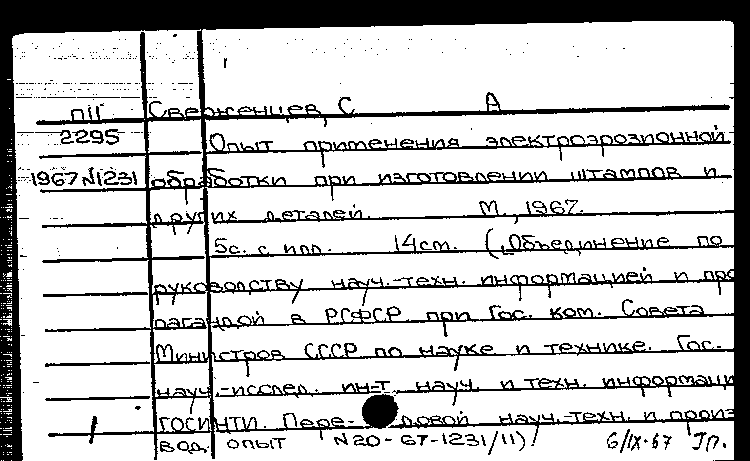 П11 Сверженцев, С А
2295 Опыт применения электроэрозионной
1967 N1231 обработки при изготовлении штампов и
других деталей. М., 1967.
5с. с илл. 14см. (Объединение по
руководству науч.-техн. информацией и про
пагандой в РСФСР при Гос. ком. Совета
Министров СССР по науке и технике. Гос.
науч.-исслед. ин-т науч. и техн. информаци
ГОСИНТИ. Передовой науч.-техн. и произ
вод. опыт N20-67-1231/11) 6/IX-67